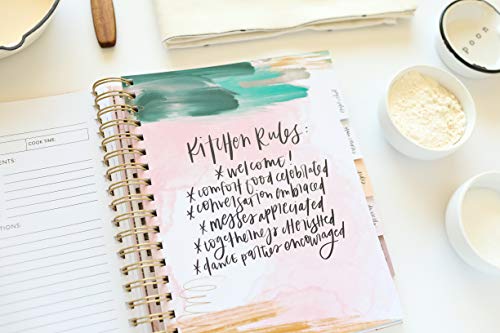 Kitchen Rules:
* welcome!
* comfort food celebrated
* conversation embraced
* messes appreciated
* togetherness cherished
* dance parties encouraged
COOK TIME: